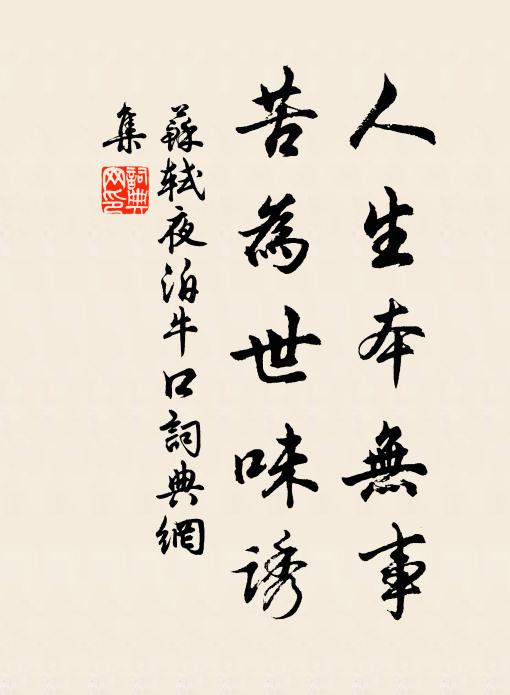 人生本無事
苦為世味誘
蘇軾夜泊牛口詞典網
集
詞典網印